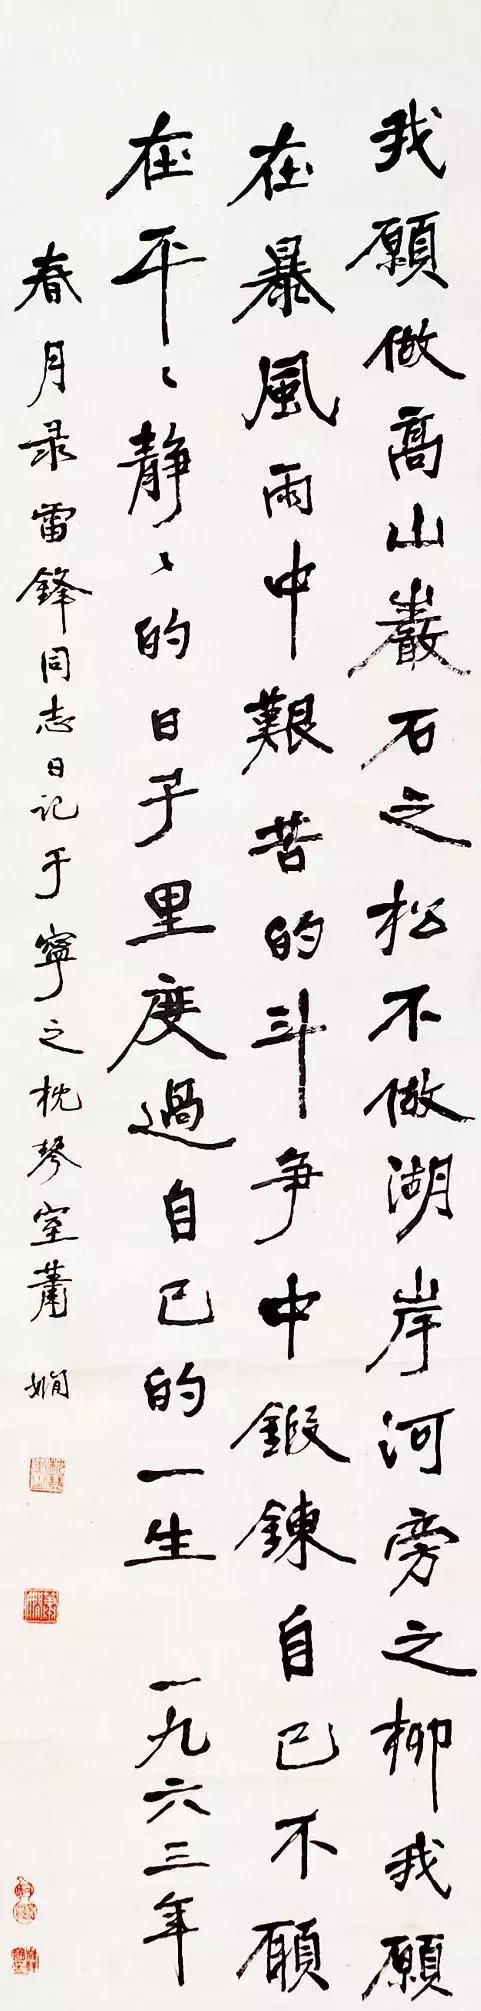 我願做高山巖石之松不做湖岸河旁之柳我願
在暴風雨中艱苦的斗争中鍛鍊自己不願
在平〻静〻的日子里度過自己的一生 一九六三年
春月录雷鋒同志日记于寧之枕琴室蕭嫻